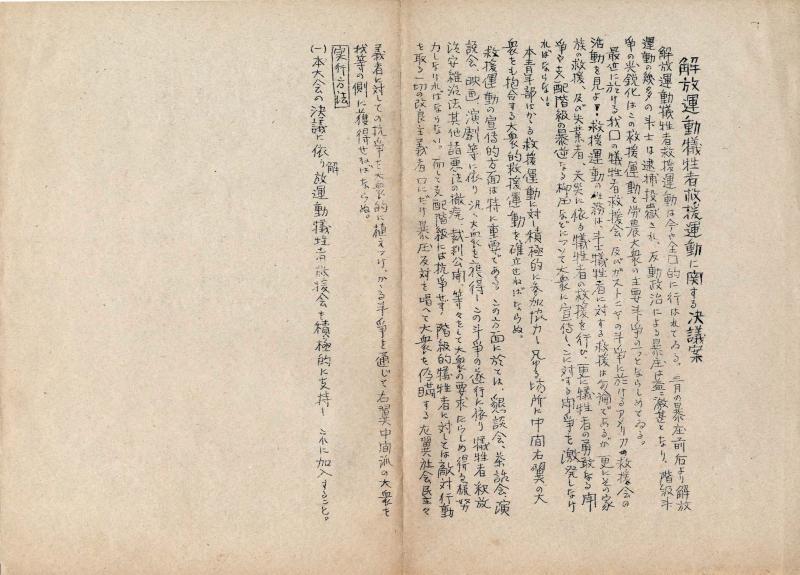 解放運動犠牲者救援運動に関する決議案
解放運動犠牲者救援運動は今や全国的に行はれてゐる。三月の暴圧前后より解放
運動の幾多の斗士は逮捕投獄され、反動政治による暴圧は益々激甚となり、階級斗
争の尖鋭化はこの救援運動を労農大衆の主要斗争の一つとならしめてゐる。
最近に於ける我国の犠牲者救援会及びガストニヤの斗争に於けるアメリカの救援会の
活動を見よ!救援運動の任務は斗士犠牲者に対する救援は勿論であるが更にその家
族の救援、及び失業者、天災に依る犠牲者の救援を行ひ、更に犠牲者の勇敢なる斗
争や支配階級の暴逆なる抑圧などについて大衆に宣伝し、これに対する斗争を激発しなけ
ればならない。
本青年部はかゝる救援運動に対し積極的に参加協力し兄ゆる場所に中間右翼の大
衆をも抱合する大衆的救援運動を確立せねばならぬ。
救援運動の宣伝的方面は特に重要である。この方面に於ては、懇談会、茶話会、演
説会、映画、演劇等に依り汎く大衆を獲得しこの斗争の遂行に依り犠牲者釈放
治安維持法其他諸悪法の撤廃、裁判公開、等々をして大衆の要求たらしめ得る様努
力しなければならない。而して支配階級には抗争せず、階級的犠牲者に対しては敵対行動
を取る一切の改良主義者、口にだけ暴圧反対を唱へて大衆を偽瞞する左翼社会民主々
義者に対しての抗争を大衆的に植えつけ、かゝる斗争を通じて右翼中間派の大衆を
我等の側に獲得せねばならぬ。
実行方法
(一)本大会の決議に依り解放運動犠牲者救援会を積極的に支持し これに加入すること。